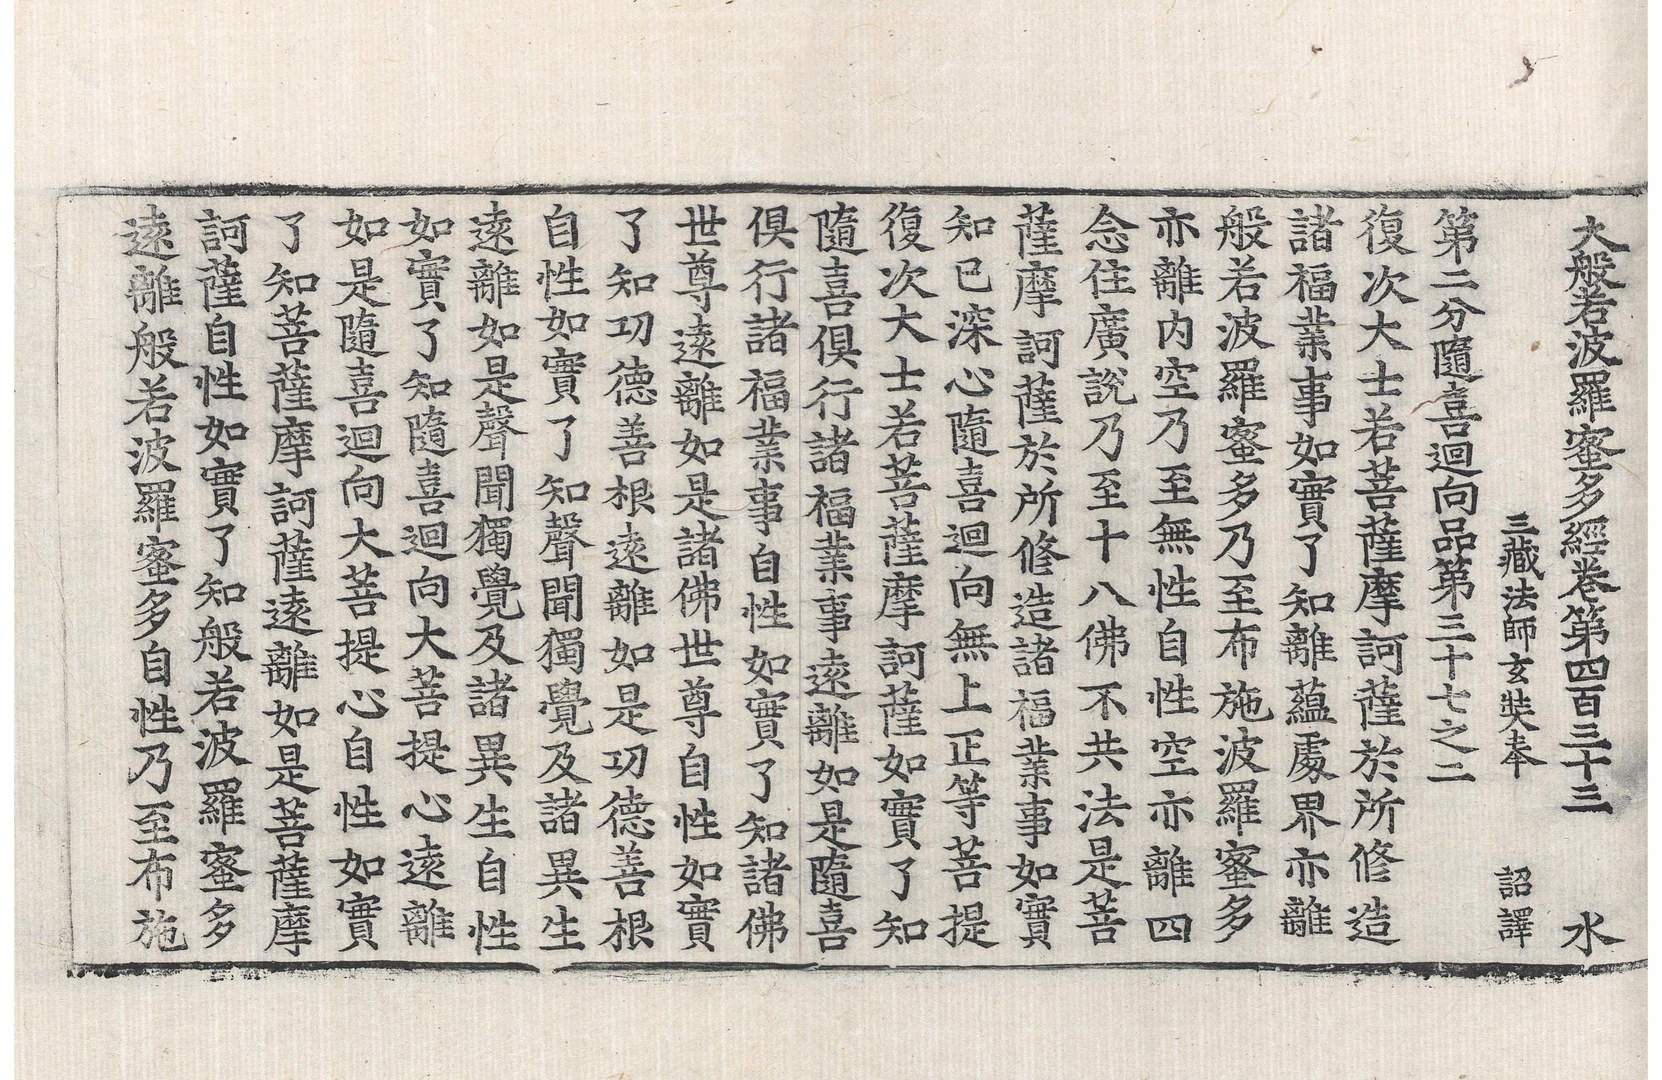 大般若波羅蜜多經卷第四百三十三 水
三藏法師玄奘奉 詔譯
第二分隨喜迴向品第三十七之二
復次大士若菩薩摩訶薩於所修造
諸福業事如實了知離蘊處界亦離
般若波羅蜜多乃至布施波羅蜜多
亦離內空乃至無性自性空亦離四
念住廣說乃至十八佛不共法是菩
薩摩訶薩於所修造諸福業事如實
知已深心隨喜迴向無上正等菩提
復次大士若菩薩摩訶薩如實了知
隨喜俱行諸福業事遠離如是隨喜
俱行諸福業事自性如實了知諸佛
世尊遠離如是諸佛世尊自性如實
了知功德善根遠離如是功德善根
自性如實了知聲聞獨覺及諸異生
遠離如是聲聞獨覺及諸異生自性
如實了知隨喜迴向大菩提心遠離
如是隨喜迴向大菩提心自性如實
了知菩薩摩訶薩遠離如是菩薩摩
訶薩自性如實了知般若波羅蜜多
遠離般若波羅蜜多自性乃至布施